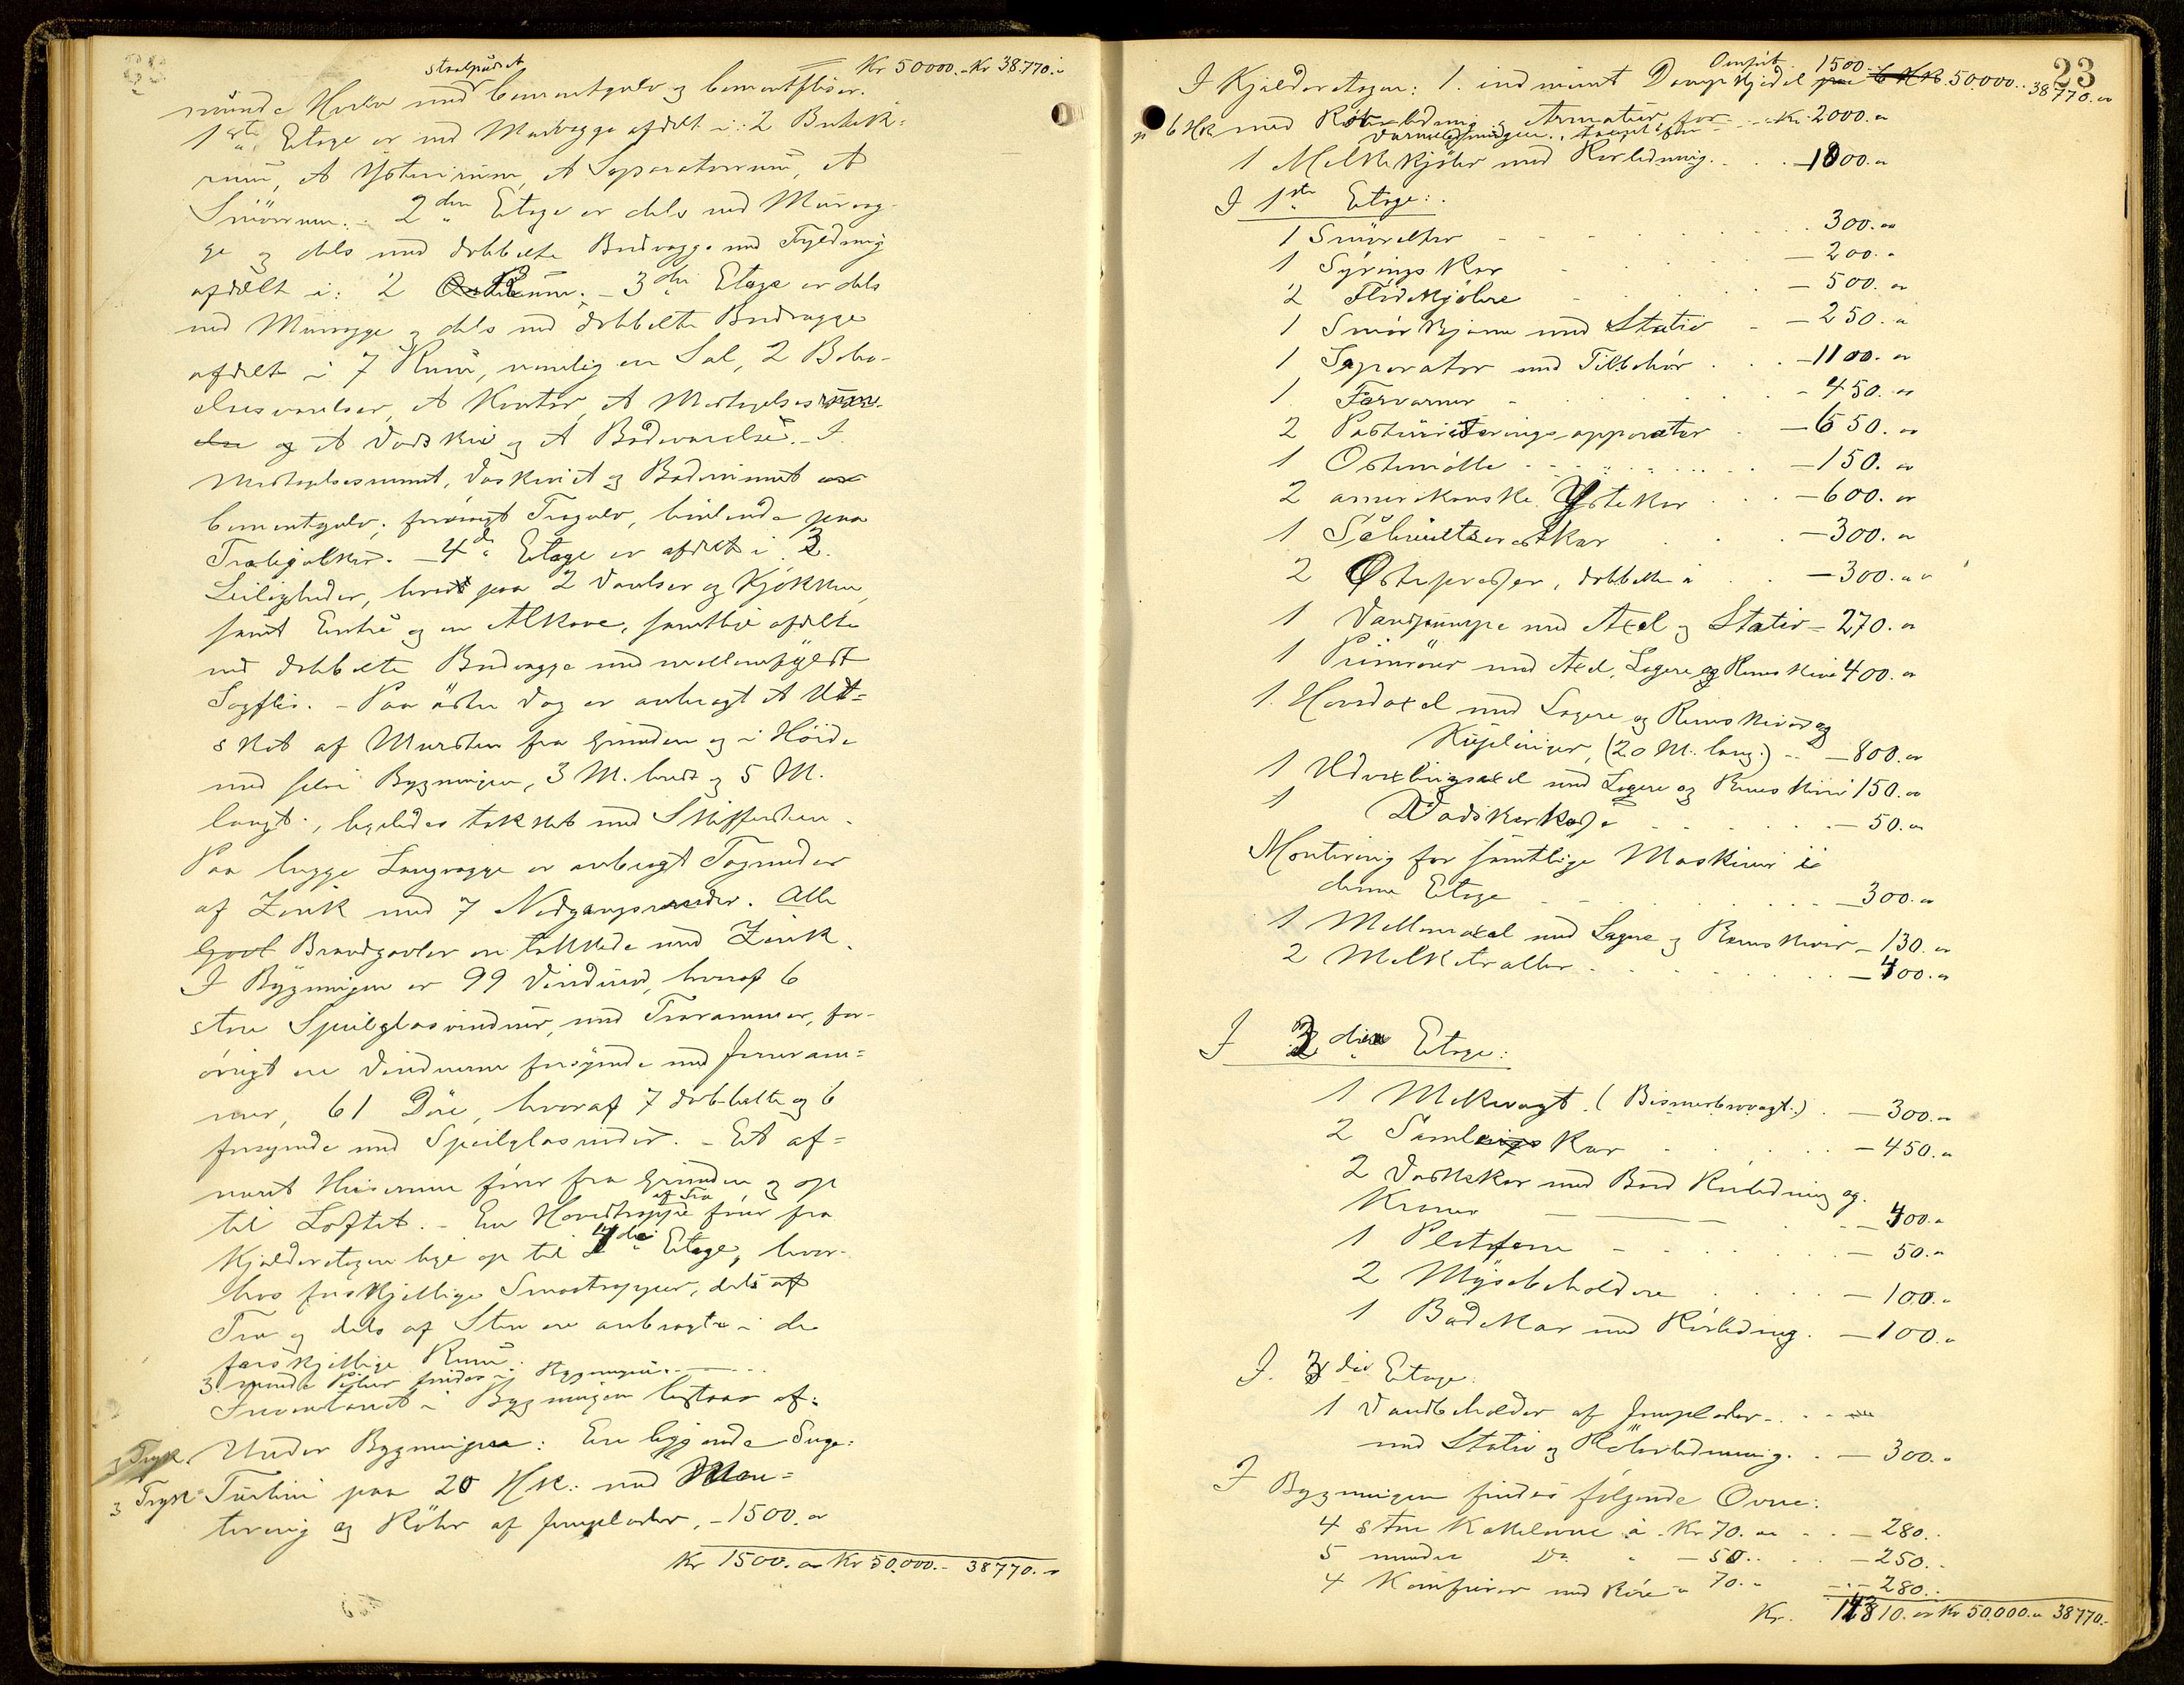 Kr 50000.- Kr 38.770.-
staalpudset
med Cementgulv og Cementfliser.
1ste Etage er med Murvægge afdelt i: 2 Butik-
rum, et Ysterirum, et Separatorrum, et
Smørrum. - 2den Etage er dels med Murvæg-
ge og dels med dobbelte Bordvægge med Fyldning
afdelt i: 2 Rum. - 3die Etage er dels
med Murvægge og dels med dobbelte Bordvægge
afdelt i 7 Rum, nemlig en Sal, 2 Bebo-
elsesværelser, et Kontor, et Modtagelsesrum
og et Vadskeri og et Badeværelse. - I
Modtagelsesrummet, Vaskeriet og Baderummet
Cementgulv; forøvrigt Trægulv, hvilende paa
Træbjælker. - 4de Etage er afdelt i 3
Leiligheder, hver paa 2 Værelser og Kjøkken,
samt Entré og en Alkove, samtlige afdelte
med dobbelte Bordvægge med mellemfyldt
Sagflis. - Paa østre Væg er anbragt et Ud-
skot af Mursten fra Grunden og i Høide
med selve Bygningen, 3 M. bredt og 5 M.
langt, ligeledes tækket med Skiffersten.
Paa begge Langvægge er anbragt Tagrender
af Zink med 7 Nedgangsrender. Alle
Brandgavler ere tækkede med Zink.
I Bygningen er 99 Vinduer, hvoraf 6
store Speilglasvinduer med Trærammer, for-
øvrigt ere Vinduerne forsynede med Jernram-
mer, 61 Døre, hvoraf 7 dobbelte og 6
forsynede med Speilglasruder. - Et af-
muret Heiserum fører fra Grunden og op
af Træ
til Loftet. - En Hovedtrappe fører fra
Kjælderetagen lige op til 4de Etage, hvor-
hos forskjellige Smaatrapper, dels af
Træ og dels af Sten ere anbragte i de
forskjellige Rum.
3 Piber findes i Bygningen.
Inventariet i Bygningen bestaar af:
og Tryk. Under Bygningen: En liggende Suge-
og Tryk- Turbin paa 20 HK. med Mon-
tering og Rør af Jernplader, - 1500.00
Kr 1500.00 Kr 50.000.- 38770.-
23
1500.- 50.000.- 38770.00
I Kjælderetagen: 1 indmuret Dampkjedel
6 HK med Rørledning og Armatur for - Kr. 2000.00
1 Melkekjøler med Rørledning. - 1800.00
I 1ste Etage:
1 Smørelter - 300.00
1 Syrings Kar - 200.-
2 Flødekjølere - 500.00
1 Smør Kjerne med Stativ - 250.-
1 Separator med Tilbehør - 1100.00
1 Forvarmer - 450.00
2 Pasteuriseringsapparater - 650.00
1 Ostemølle - 150.00
2 amerikanske Ystekar - 600.00
1 Schweitzerostkar - 300.00
2 Ostepresser, dobbelte - 300.00
1 Vandpumpe med Axel og Stativ - 270.00
1 med Axel, Lagere og Remskive 400.00
1 Hovedaxel med Lagere og Remskiver og
Kuplinger, (20 M. lang.) - 800.00
1 Udvexlingsaxel med Lagere og Remskive 150.00
1 Vadskerkasse - 50.00
Montering for samtlige Maskiner i
denne Etage - 300.00
1 Mellemaxel med Lagere og Remskiver - 130.00
2 Melketraller - 400.00
I 3die Etage:
1 Melkevægt (Bismerbrovægt.) - 300.-
2 Samlekar - 450.00
2 Vadskekar med Bord Rørledning og
Kraner - 400.-
1 Platform - 50.-
2 Mysebeholdere - 100.-
1 Badekar med Rørledning. - 100.-
I 3die Etage:
1 Vandbeholder af Jernplader
med Stativ og Rørledning. - 300.-
I Bygningen findes følgende Ovne:
4 store Kakkelovne à Kr 70.00 - 280.-
5 mindre Do - 50.- - 250.-
4 Komfurer med Rør à 70.- - 280.-
Kr. 14310.00 Kr 50.000.- 38770.-